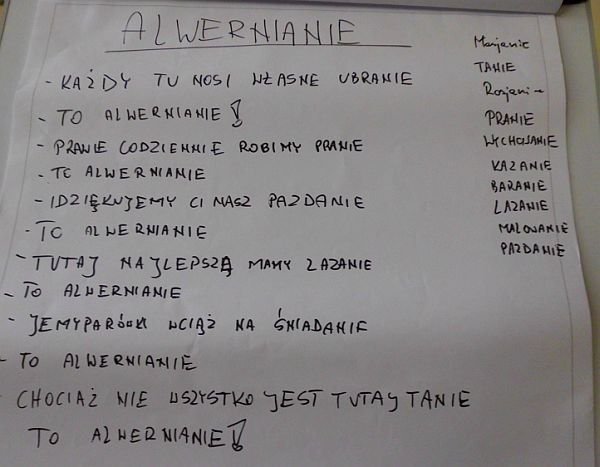 ALWERNIANIE
- KAŻDY TU NOSI WŁASNE UBRANIE
- TO ALWERNIANIE!
- PRAWIE CODZIENNIE ROBIMY PRANIE
- TO ALWERNIANIE
- IDZIĘKUJEMY CI NASZ PAZDANIE
- TO ALWERNIANIE
- TUTAJ NAJLEPSZĄ MAMY LAZANIE
- TO ALWERNIANIE
- JEMYPARÓWKI WCIĄŻ NA ŚNIADANIE
- TO ALWERNIANIE
CHOCIAŻ NIE WSZYSTKO JEST TUTAJ TANIE
TO ALWERNIANIE!
Marjanie
TANIE
PRANIE
WYCHOWANIE
KAZANIE
BARANIE
LAZANIE
MALOWANIE
PAZDANIE